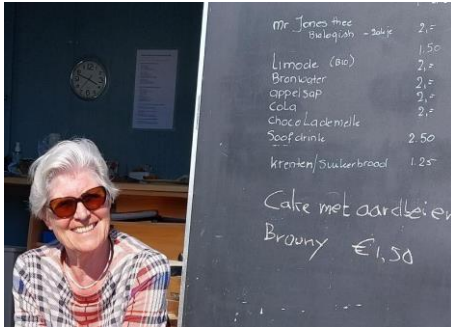 mr Jones thee 2,=
Biologish - zakje
1.50
Limode (BIO) 2,=
Bronwater 2,=
appelsap 2,=
Cola 2,=
chocolademelk
Soofdrink 2.50
krenten/Suikerbrood 1.25
Cake met aardbeien
Browny €1,50